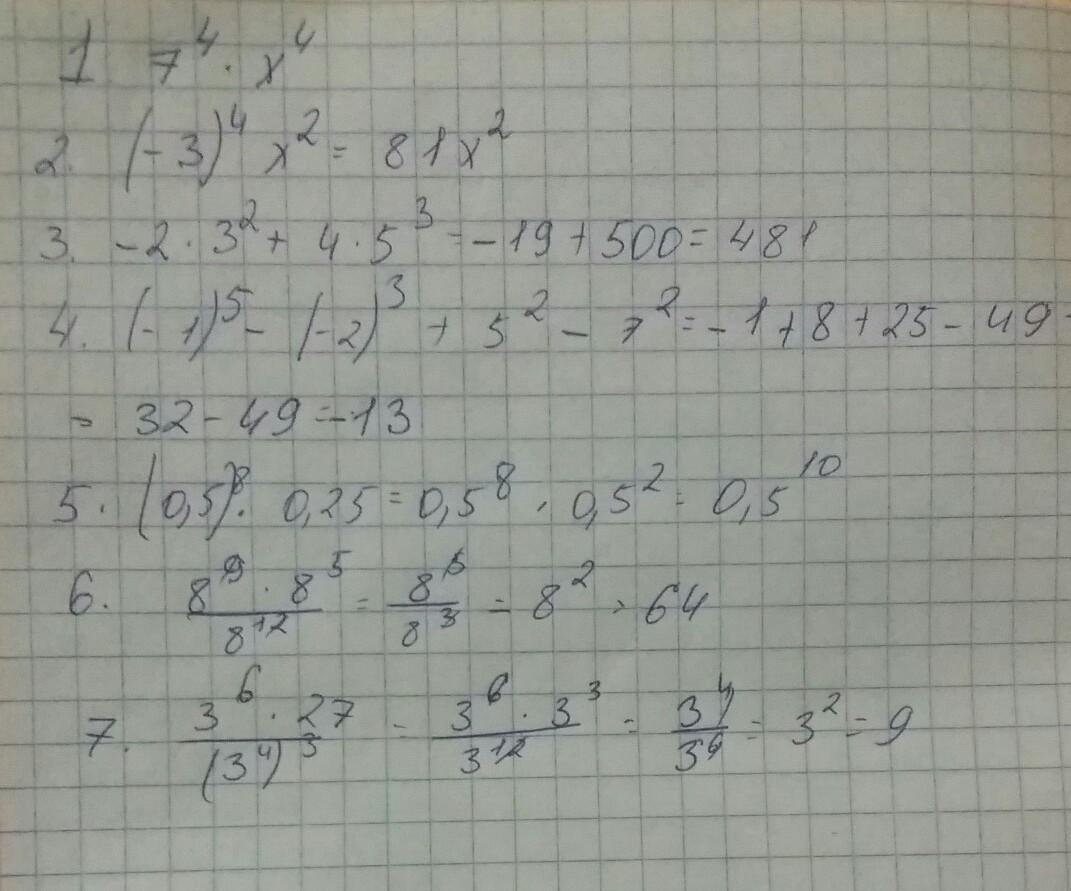 1 7⁴ · x⁴
2. (-3)⁴ x² = 81x²
3. -2 · 3² + 4 · 5³ = -19 + 500 = 481
4. (-1)⁵ - (-2)³ + 5² - 7² = -1 + 8 + 25 - 49 -
= 32 - 49 = -13
5. (0,5)⁸ · 0,25 = 0,5⁸ · 0,5² = 0,5¹⁰
6. (8⁹ · 8⁵)/8¹² = 8⁵/8³ = 8² = 64
7. (3⁶ · 27)/(3⁴)³ = (3⁶ · 3³)/3¹² = 3⁴/3⁶ = 3² = 9